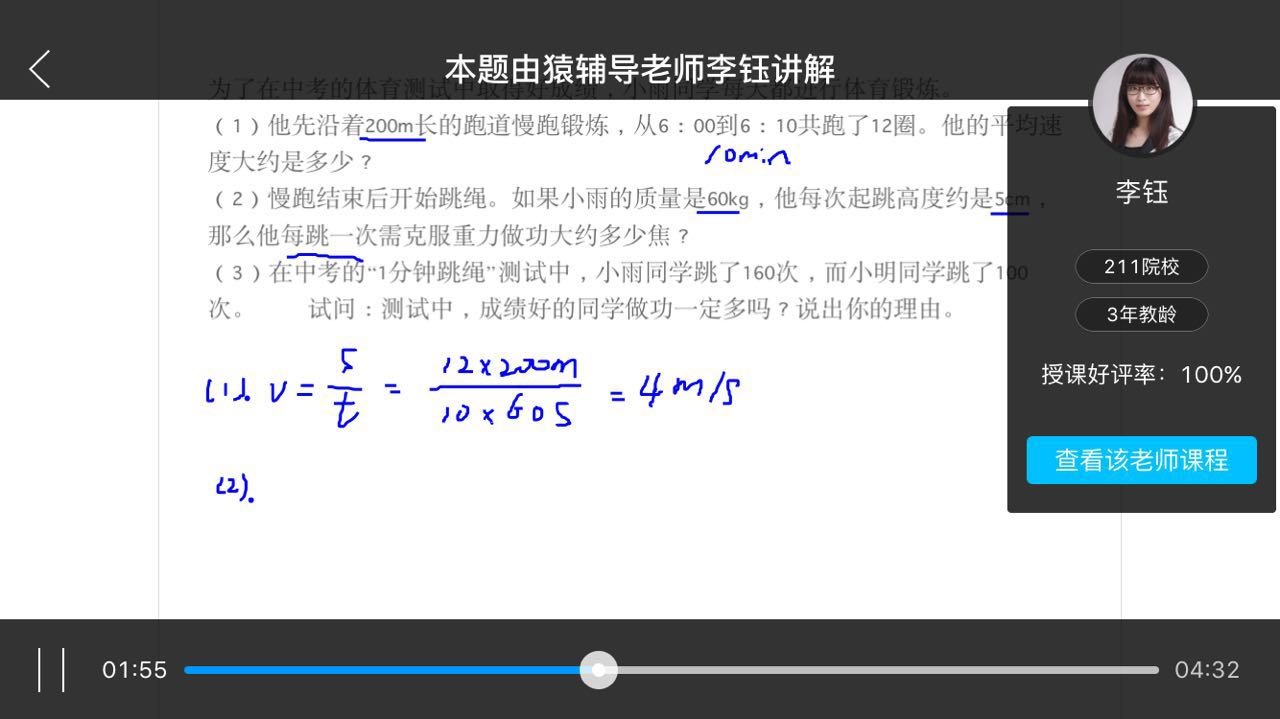 本题由猿辅导老师李钰讲解
为了在中考的体育测试中取得好成绩，小雨同学每天都进行体育锻炼。
（1）他先沿着200m长的跑道慢跑锻炼，从6：00到6：10共跑了12圈。他的平均速
度大约是多少？
10min
（2）慢跑结束后开始跳绳。如果小雨的质量是60kg，他每次起跳高度约是5cm，
那么他每跳一次需克服重力做功大约多少焦？
（3）在中考的“1分钟跳绳”测试中，小雨同学跳了160次，而小明同学跳了100
次。 试问：测试中，成绩好的同学做功一定多吗？说出你的理由。
(1). v = s/t = 12×200m/10×60s = 4m/s
(2).
李钰
211院校
3年教龄
授课好评率：100%
查看该老师课程
01:55
04:32